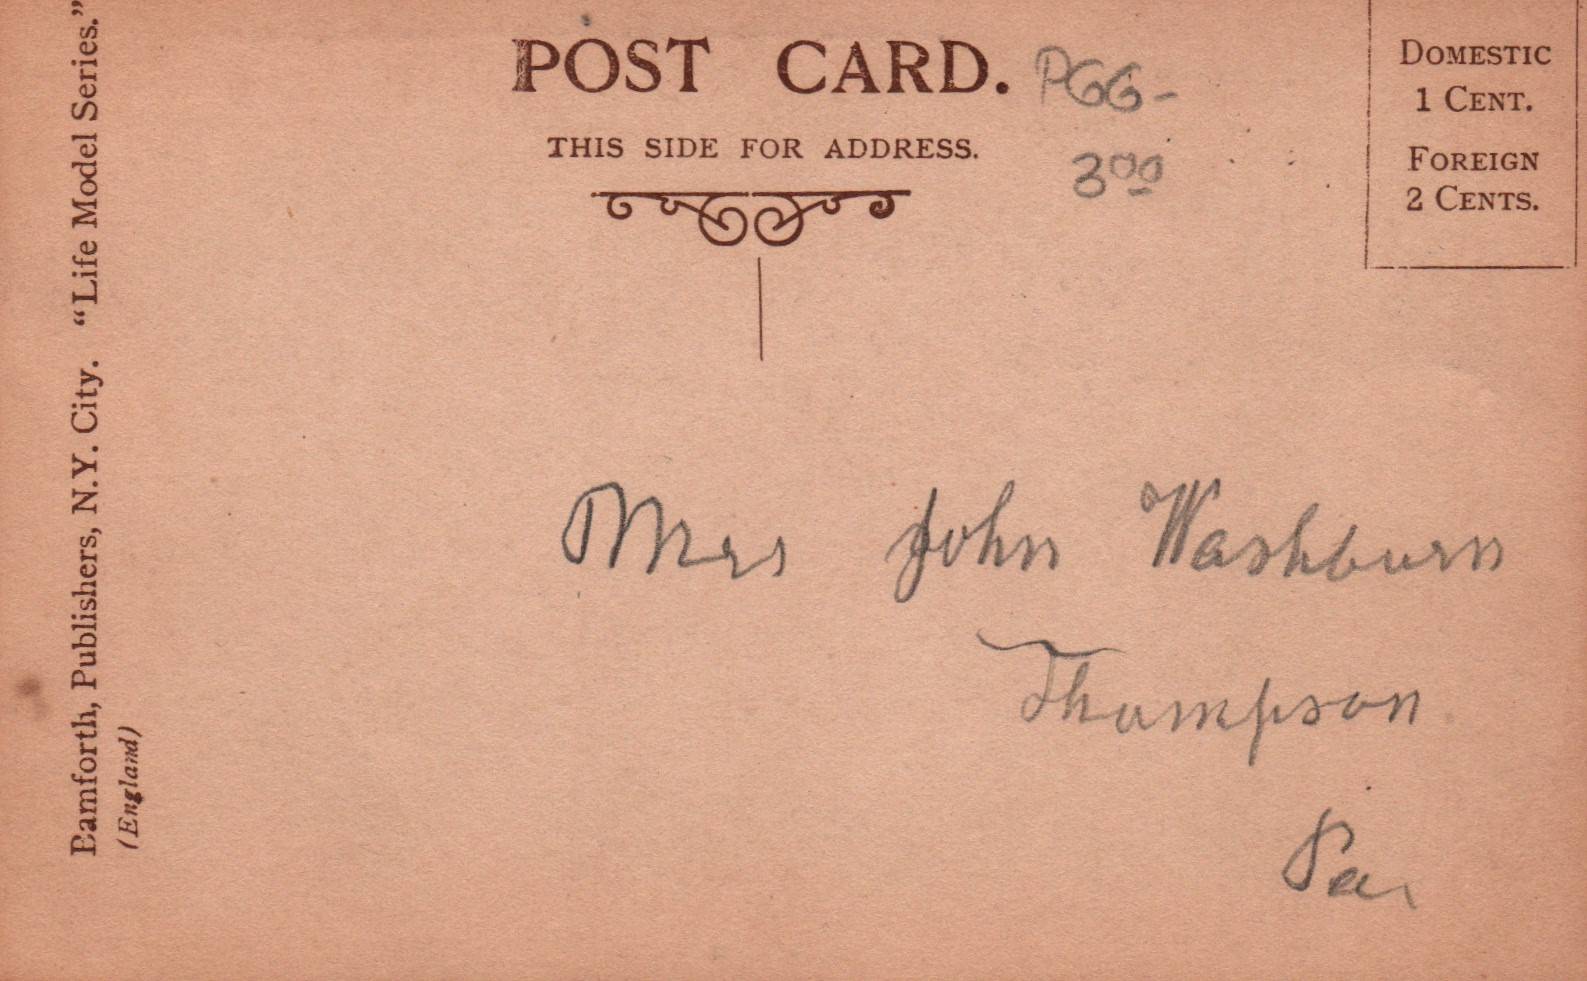 POST CARD.
PGG-
THIS SIDE FOR ADDRESS.
3⁰⁰
DOMESTIC
1 CENT.
FOREIGN
2 CENTS.
Bamforth, Publishers, N.Y. City. “Life Model Series.”
(England)
Mrs John Washburn
Thompson
Pa.